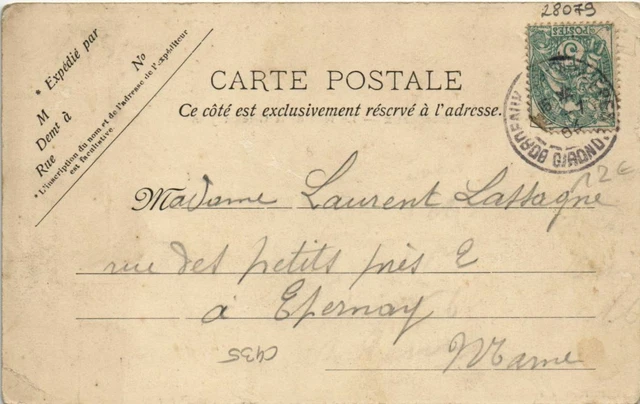 28079
* Expédié par
M
Demt à
Rue No
* L'inscription du nom et de l'adresse de l'expéditeur
est facultative.
CARTE POSTALE
Ce côté est exclusivement réservé à l'adresse.
POSTES
5
BORDEAUX GIRONDE
12€
Madame Laurent Lassagne
rue des petits près 2
à Epernay
Marne
C935